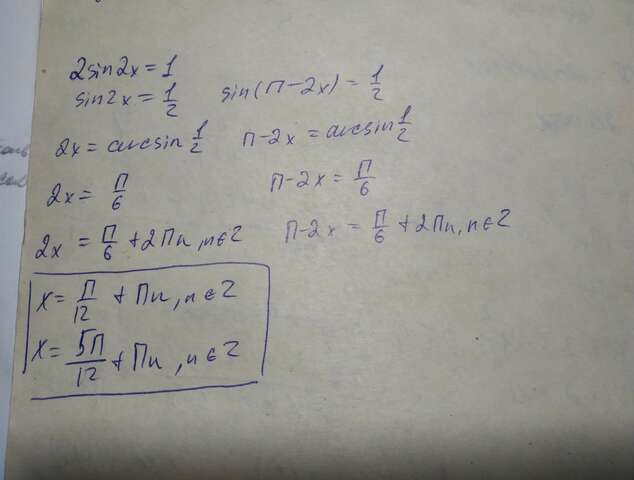 2sin2x = 1
sin2x = 1/2 sin(П-2x) = 1/2
2x = arcsin 1/2 П-2x = arcsin 1/2
2x = П/6 П-2x = П/6
2x = П/6 + 2Пn, n∈Z П-2x = П/6 + 2Пn, n∈Z
x = П/12 + Пn, n∈Z
x = 5П/12 + Пn, n∈Z